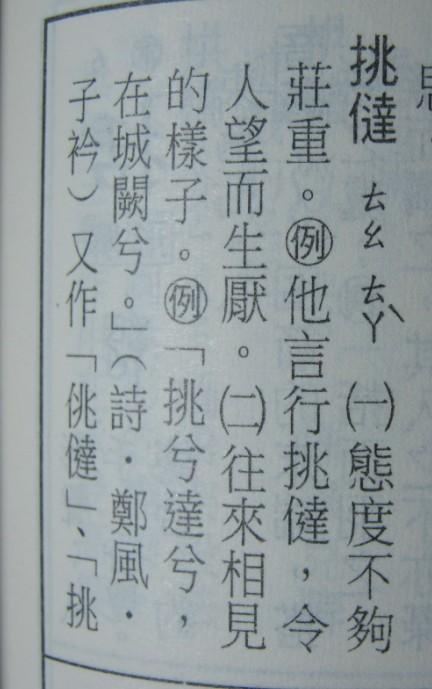 挑㒓 ㄊㄠ ㄊㄚˋ ㈠態度不夠
莊重。例他言行挑㒓,令
人望而生厭。㈡往來相見
的樣子。例「挑兮達兮,
在城闕兮。」(詩·鄭風·
子衿)又作「佻㒓」、「挑